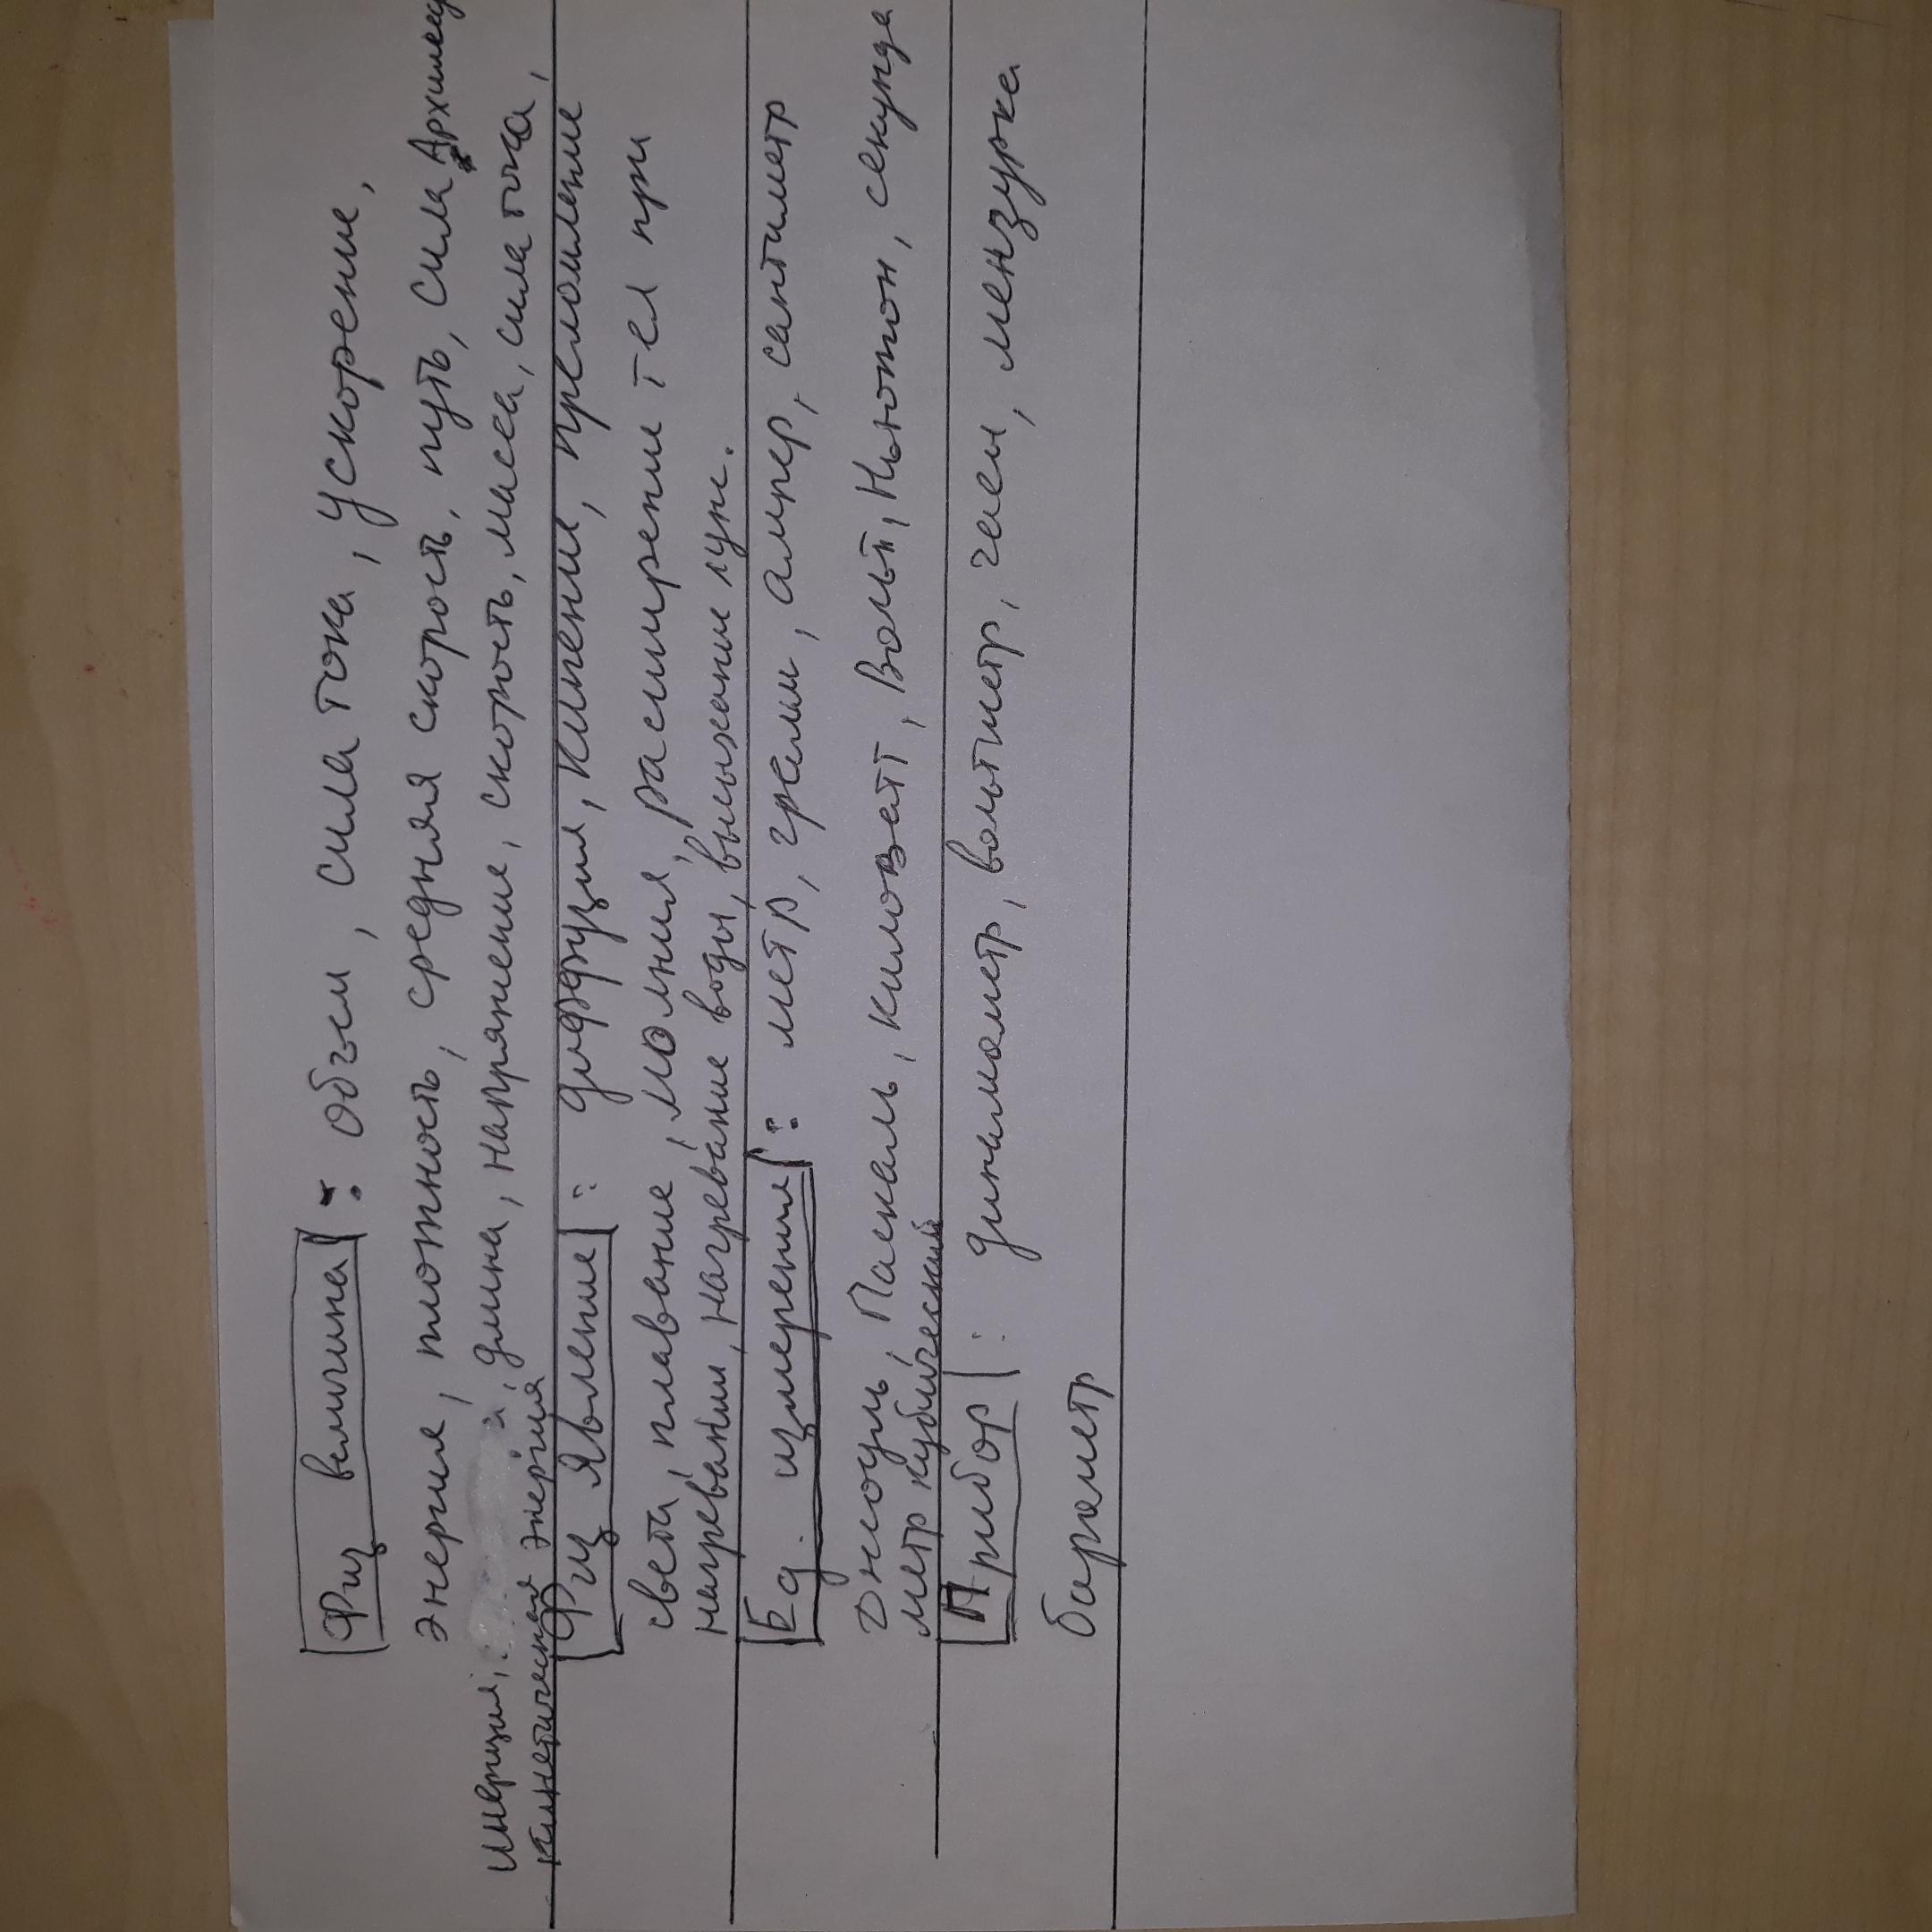 Физ величина : объем, сила тока, ускорение,
энергия, плотность, средняя скорость, путь, сила Архимед
инерция, длина, напряжение, скорость, масса, сила тока,
кинетическая энергия
Физ явление : диффузия, кипение, преломление
света, плавание, молния, расширение тел при
нагревании, нагревание воды, высыхание луж.
Ед. измерения : метр, грамм, ампер, сантиметр
Джоуль, Паскаль, киловатт, Вольт, Ньютон, секунда
метр кубический
Прибор : динамометр, вольтметр, часы, мензурка
барометр